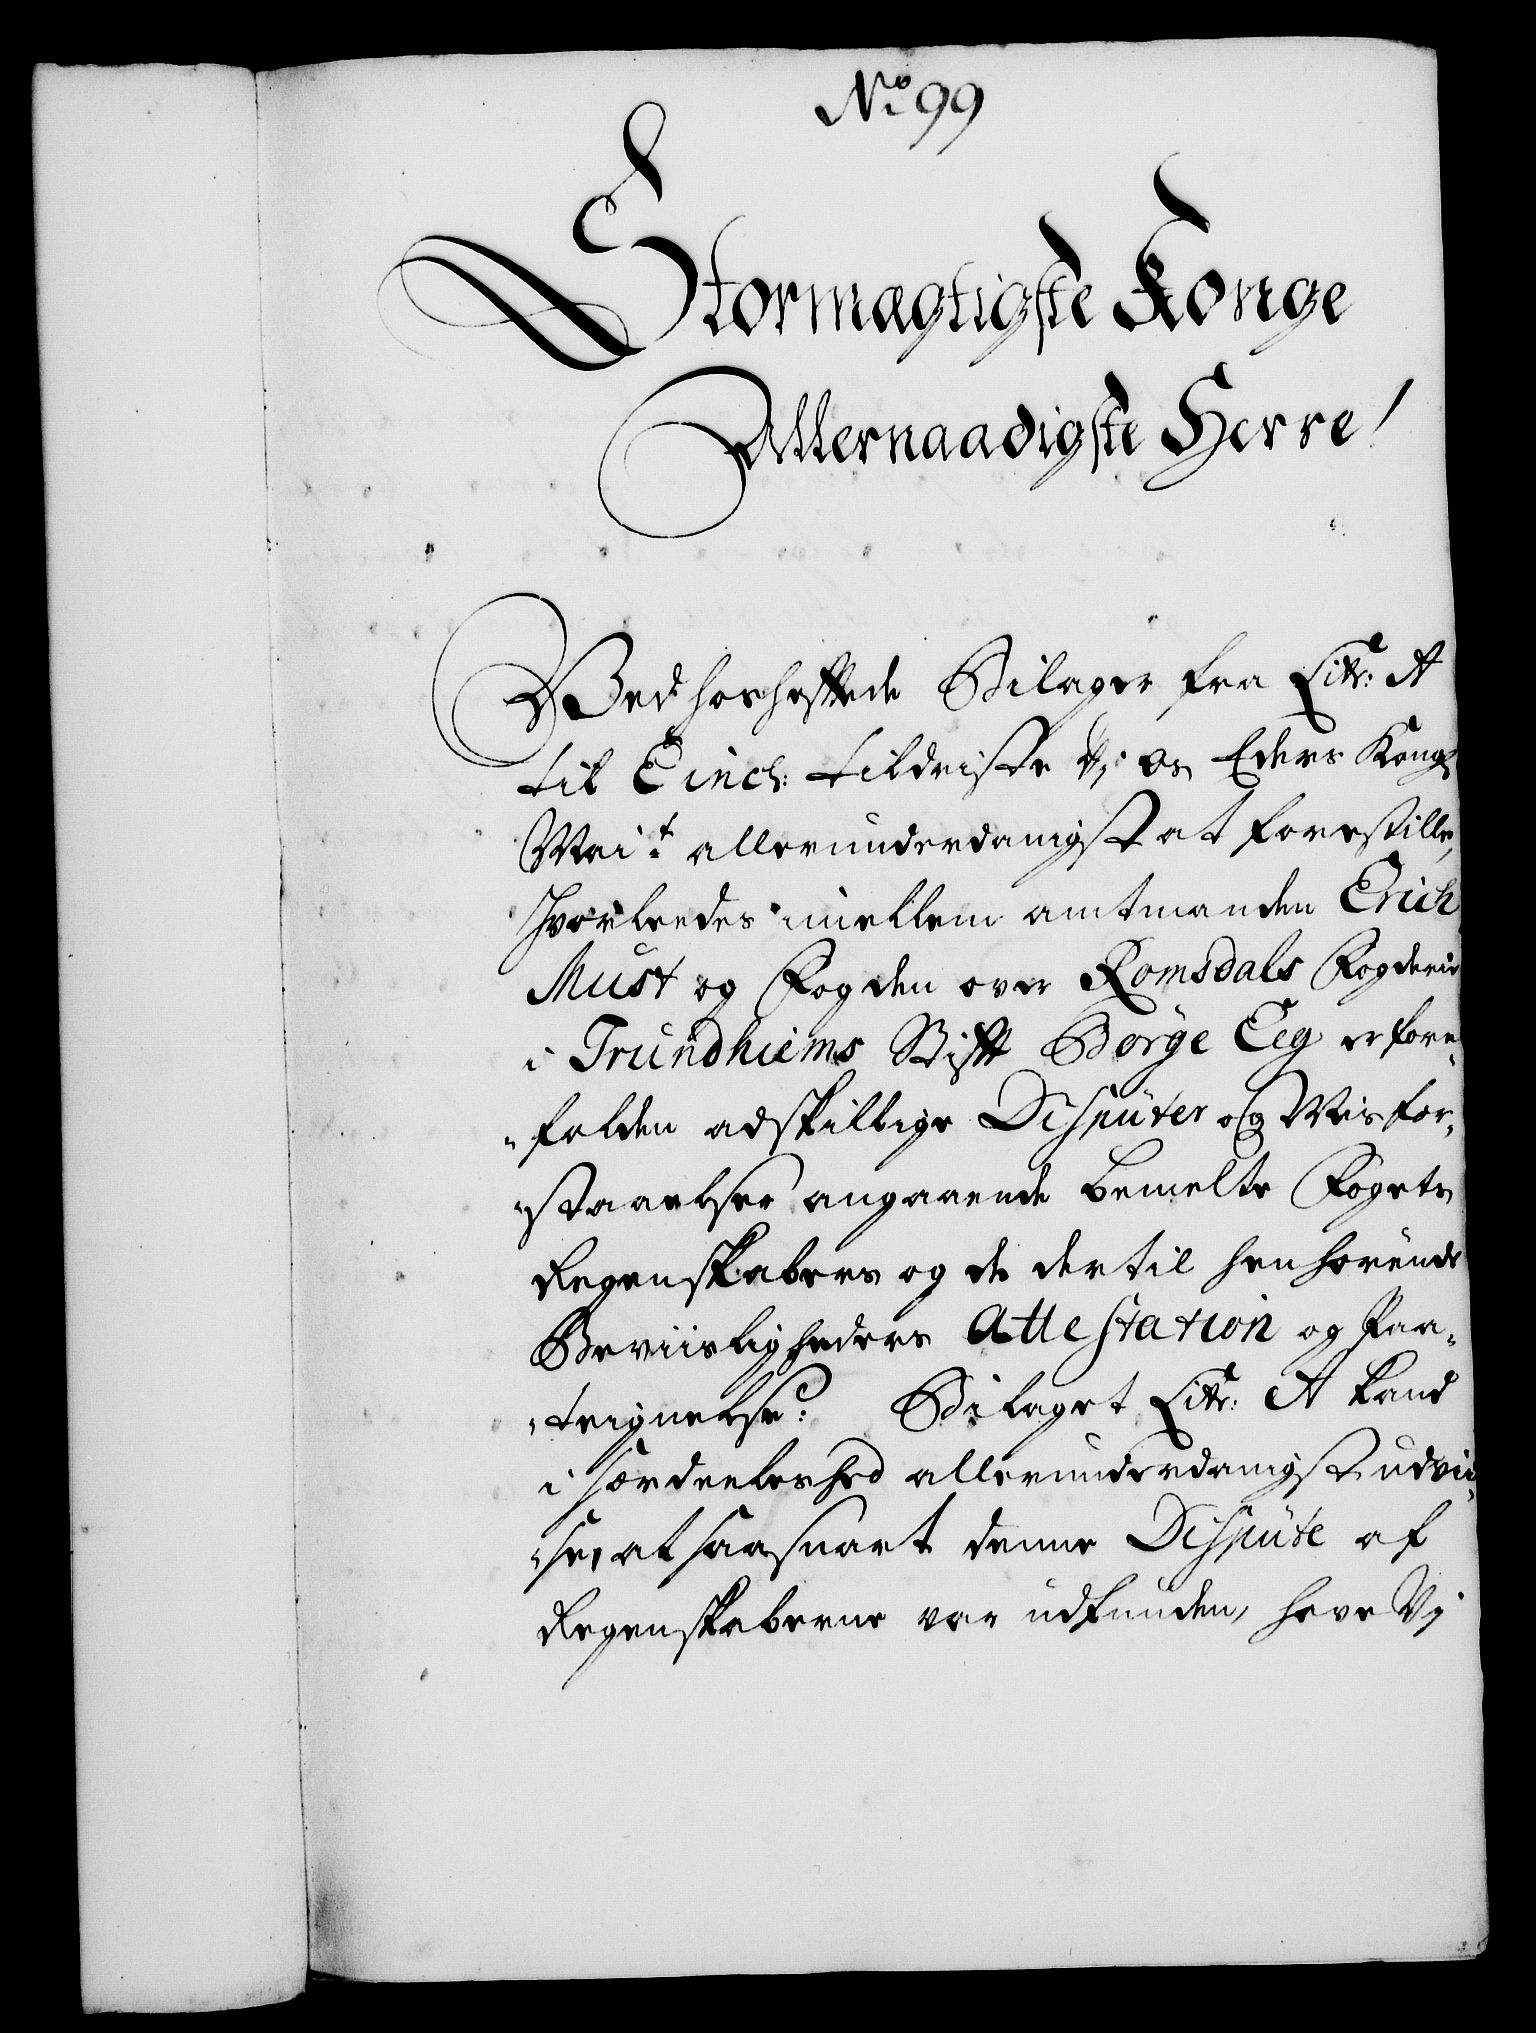 No 99
Stormægtigste Konge
Allernaadigste Herre!
Ved hoshæftede Bilager fra Litr: A
til E incl: tildriste Vi os Eders Kongl
Mai.t allerunderdanigst at forestille,
hvorleedes imellem amtmanden Erich
Must og Fogden over Romsdals Fogderie
i Trundhiems Stift Børge Eeg er fore„
„falden adskillige Disputer og Misfor„
„staaelser angaaende bemelte Fogets
Regenskabers og de dertil henhørende
Beviisligheders Attestation og Paa„
„teignelse: Bilaget Litr: A kand
i særdeeleshed allerunderdanigst udvii„
„se, at saasnart denne Dispute af
Regenskaberne var udfunden, have Vi